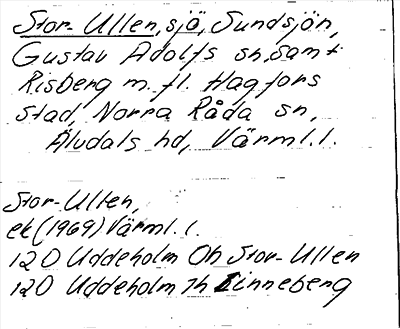 Stor-Ullen, sjä, Sundsjön,
Gustav Adolfs sn, samt
Risberg m. fl. Hagfors
stad, Norra Råda sn,
Älvdals hd, Värml. l.
Stor-Ullen,
ek (1969) Värml. l.
12 D Uddeholm Oh Stor-Ullen
12 D Uddeholm 7h Linneberg